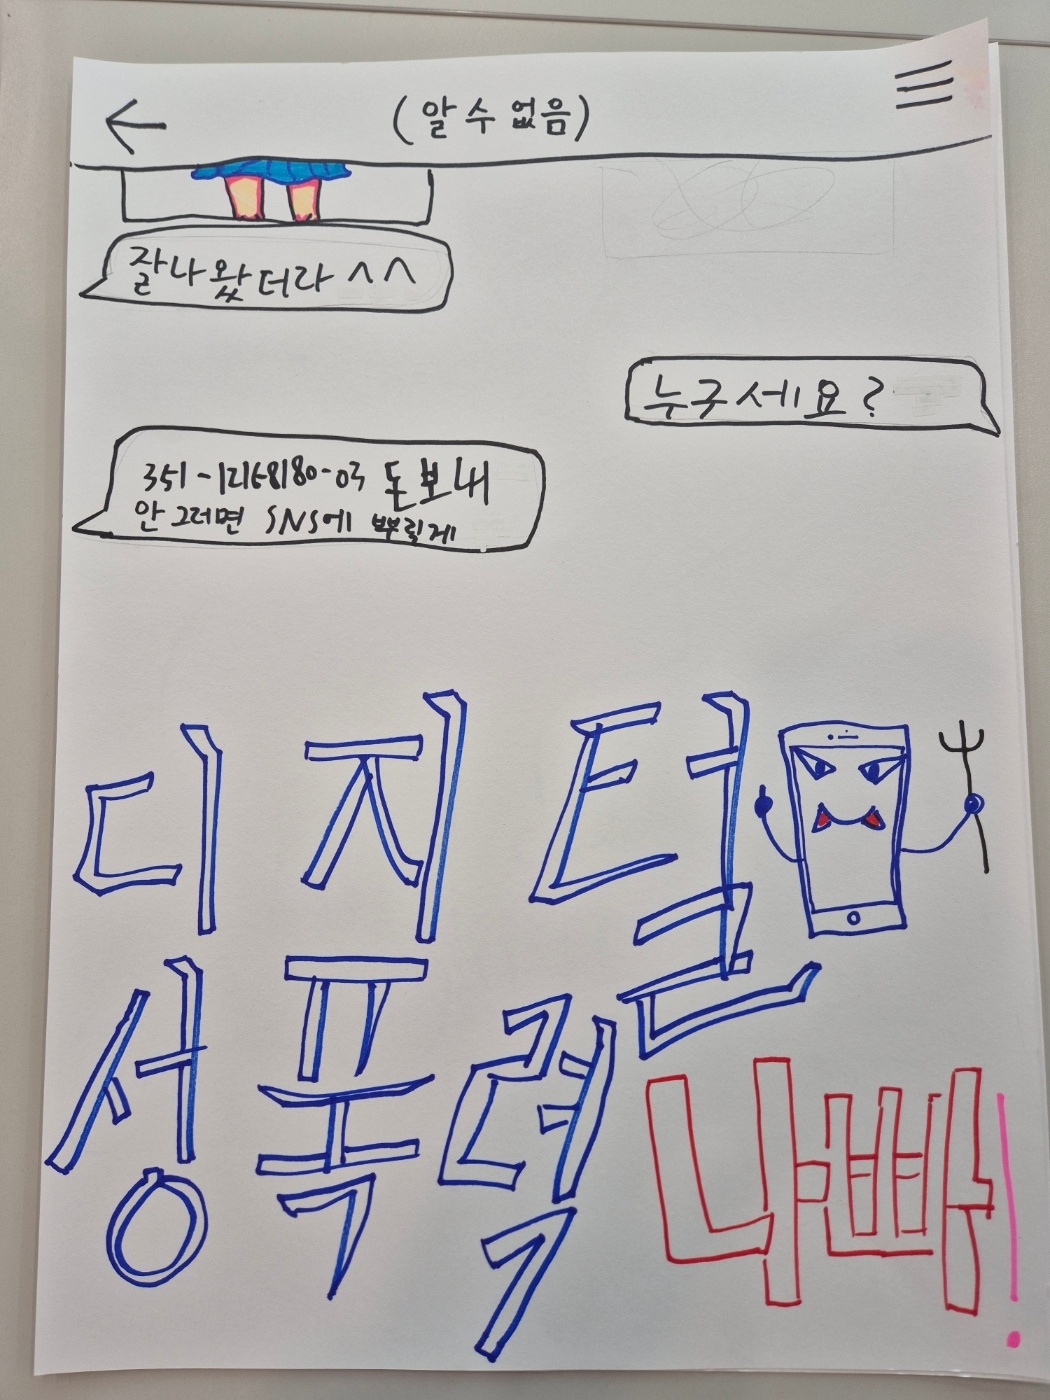 (알 수 없음)
잘 나왔더라 ^^
누구세요?
351-1268180-03 돈 보내
안 그러면 SNS에 뿌릴게
디지털
성폭력
나빠!